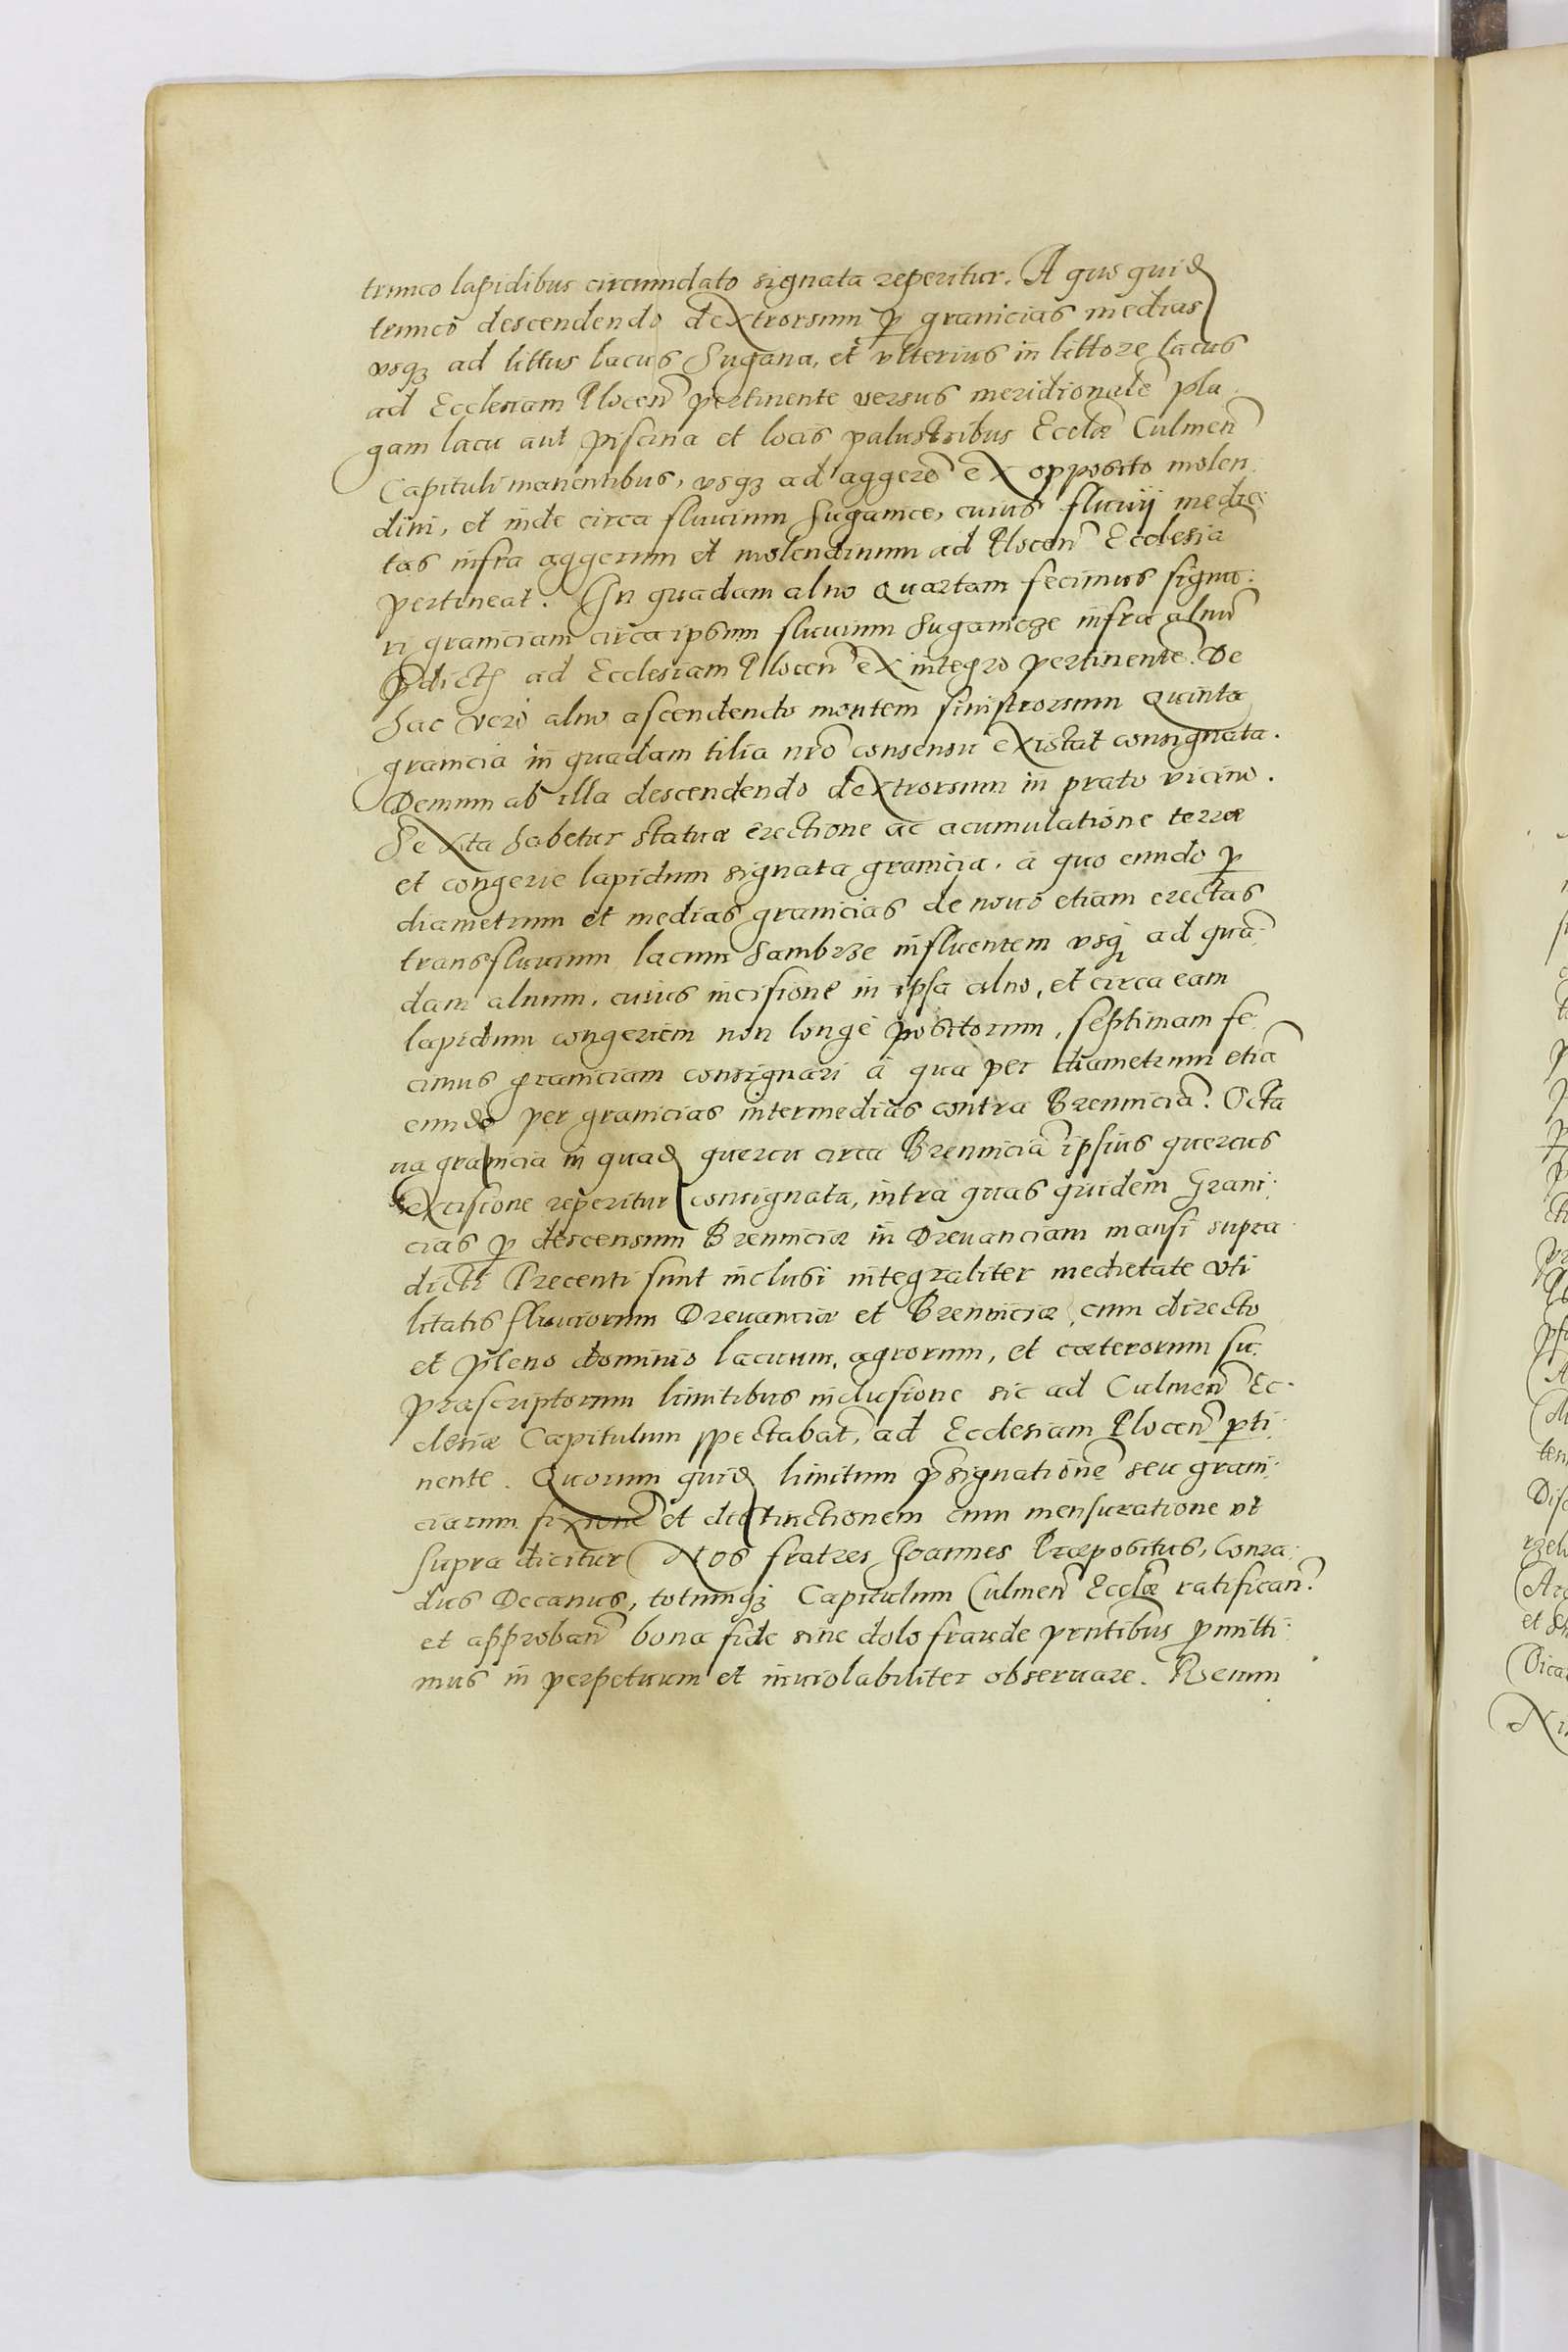 trunco lapidibus circumdato signata reperitur. A quo quid
trunco descendendo dextrorsum p granicias medias
vsqꝫ ad littus lacus Sugana, et vlterius in littore lacus
ad Ecclesiam Plocen pertinente versus meridionalē pla
gam lacu aut piscina et locis palustribus Eccliæ Culmen
Capituli manentibus, vsqꝫ ad aggerē ex opposito molen
dini, et inde circa fluuium Sugamce, cuius fluuij medie
tas infra aggerum et molendinum ad Plocen Ecclesiā
pertineat. In quadam alno Quartam fecimus signa
ri graniciam circa ipsum fluuium Sugamcze infra alnū
p̄dict ad Ecclesiam Plocen ex integro pertinente. De
hac vero alno ascendendo montem sinistrorsum Quinta
granicia in quadam tilia nr̄o consensu existat consignata.
Demum ab illa descendendo dextrorsum in prato vicino.
Sexta habetur statuæ erectione ac acumulatione terræ
et congerie lapidum signata granicia. a quo eundo p
diametrum et medias granicias de nouo etiam erectas
transfluuium lacum Sambrze influentem vsqꝫ ad quā
dam alnum. cuius incisione in ipsa alno, et circa eam
lapidum congeriem non longe positorum, septimam fe
cimus graniciam consignari a qua per diametrum etiā
eundo per granicias intermedias contra Brenniciā. Octa
ua granicia in quad quercu circa Brenniciā ipsius quercus
excisione reperitur consignata, intra quas quidem Grani
cias p descensum Brenniciæ in Dreuanciam mansi supra
dicti Precenti sunt inclusi integraliter medietate vti
litatis fluuiorum Dreuanciæ et Brenniciæ, cum directo
et pleno dominio lacuum, agrorum, et cæterorum su
præscriptorum limitibus inclusione sic ad Culmen Ec
clesiæ Capitulum spectabat, ad Ecclesiam Plocen pti
nente. Quorum quid limitum p̄signationē seu grani
ciarum fixionē et distinctionem cum mensuratione vt
supra dicitur Nos fratres Joannes Præpositus, Conra
dus Decanus, totumqꝫ Capitulum Culmen Eccliæ ratifican
et approban bona fide sine dolo fraude pn̄tibus p̄mitti
mus in perpetuum et inuiolabiliter obseruare. Rerum